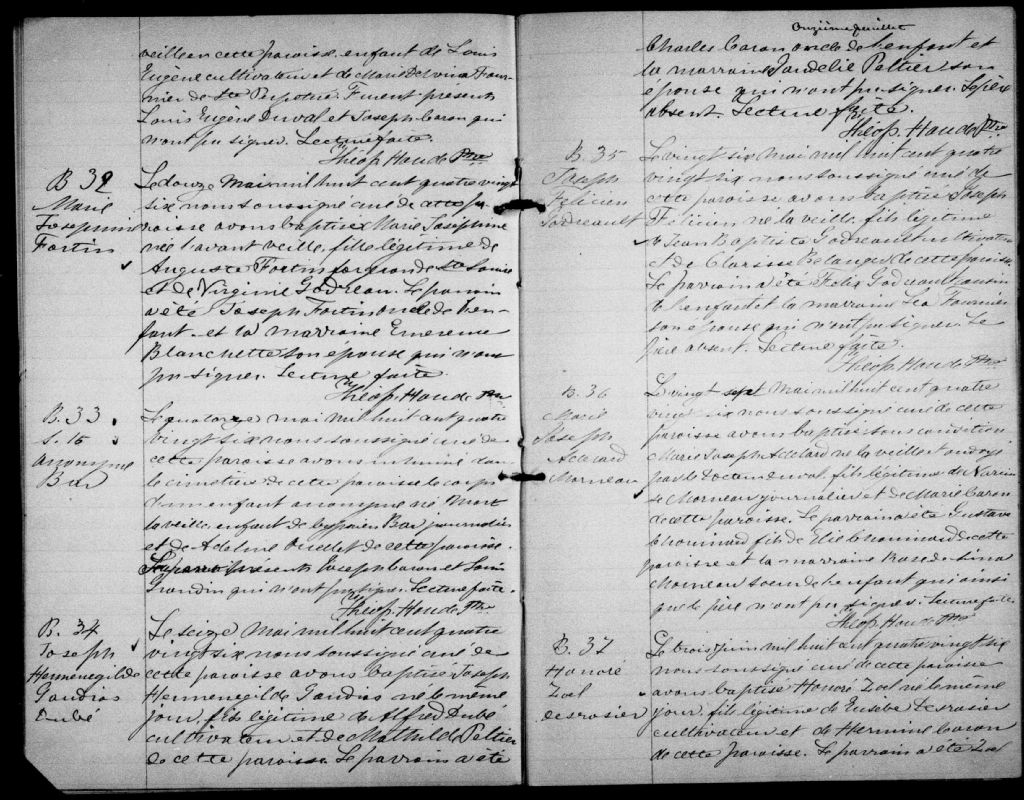 veille en cette paroisse enfant de Louis
Eugène cultivateur et de Marie Delvina Four
nier de Ste Perpétue. Furent présents
Louis Eugène Duval et Joseph Caron qui
n'ont pu signer. Lecture faite.
Théop. Houde Ptre
B 32
Marie
Josephine
Fortin
Le douze mai mil huit cent quatre vingt
six nous soussigné curé de cette pa
roisse avons baptisé Marie Josephine
née l'avant veille, fille légitime de
Auguste Fortin forgeron de Ste Louise
et de Virginie Godreau. Le parrain
a été Joseph Fortin oncle de l'en-
fant et la marraine Emerence
Blanchette son épouse qui n'ont
pu signer. Lecture faite.
Théop. Houde Ptre
B. 33
S. 15
anonyme
Bar
Le quatorze mai mil huit cent quatre
vingt six nous soussigné curé de
cette paroisse avons inhumé dans
le cimetière de cette paroisse le corps
d'un enfant anonyme né mort
la veille, enfant de Bar journalier
et de Adeline Ouellet de cette paroisse.
présents Joseph Caron et Louis
Grondin qui n'ont pu signer. Lecture faite.
Théop. Houde Ptre
B. 34
Joseph
Hermenegilde
Gaudias
Dubé
Le seize mai mil huit cent quatre
vingt six nous soussigné curé de
cette paroisse avons baptisé Joseph
Hermenegilde Gaudias né le même
jour, fils légitime de Alfred Dubé
cultivateur et de Mathilde Peltier
de cette paroisse. Le parrain a été
Onzième feuillet
Charles Caron oncle de l'enfant et
la marraine Peltier son
épouse qui n'ont pu signer. Le père
absent. Lecture faite.
Théop. Houde Ptre
B. 35
Joseph
Felicien
Godreault
Le vingt six mai mil huit cent quatre
vingt six nous soussigné curé de
cette paroisse avons baptisé Joseph
Felicien né la veille, fils légitime
de Jean Baptiste Godreault cultivateur
et de Clarisse Belanger de cette paroisse.
Le parrain a été Felix Godreault cousin
de l'enfant et la marraine Léa Fournier
son épouse qui n'ont pu signer. Le
père absent. Lecture faite.
Théop. Houde Ptre
B. 36
Marie
Joseph
Adelard
Morneau
Le vingt sept mai mil huit cent quatre
vingt six nous soussigné curé de cette
paroisse avons baptisé sous condition
Marie Joseph Adelard né la veille et ondoyé
par le docteur Duval, fils légitime de
de Morneau journalier et de Marie Caron
de cette paroisse. Le parrain a été Gustave
Chouinard fils de Elie Chouinard de cette
paroisse et la marraine Rose de Lima
Morneau soeur de l'enfant qui ainsi
que le père n'ont pu signer. Lecture faite.
Théop. Houde Ptre
B. 37
Honoré
Zoel
desrosier
Le trois juin mil huit cent quatre vingt six
nous soussigné curé de cette paroisse
avons baptisé Honoré Zoel né le même
jour, fils légitime de Eusèbe Desrosier
cultivateur et de Hermine Caron
de cette paroisse. Le parrain a été Zoel